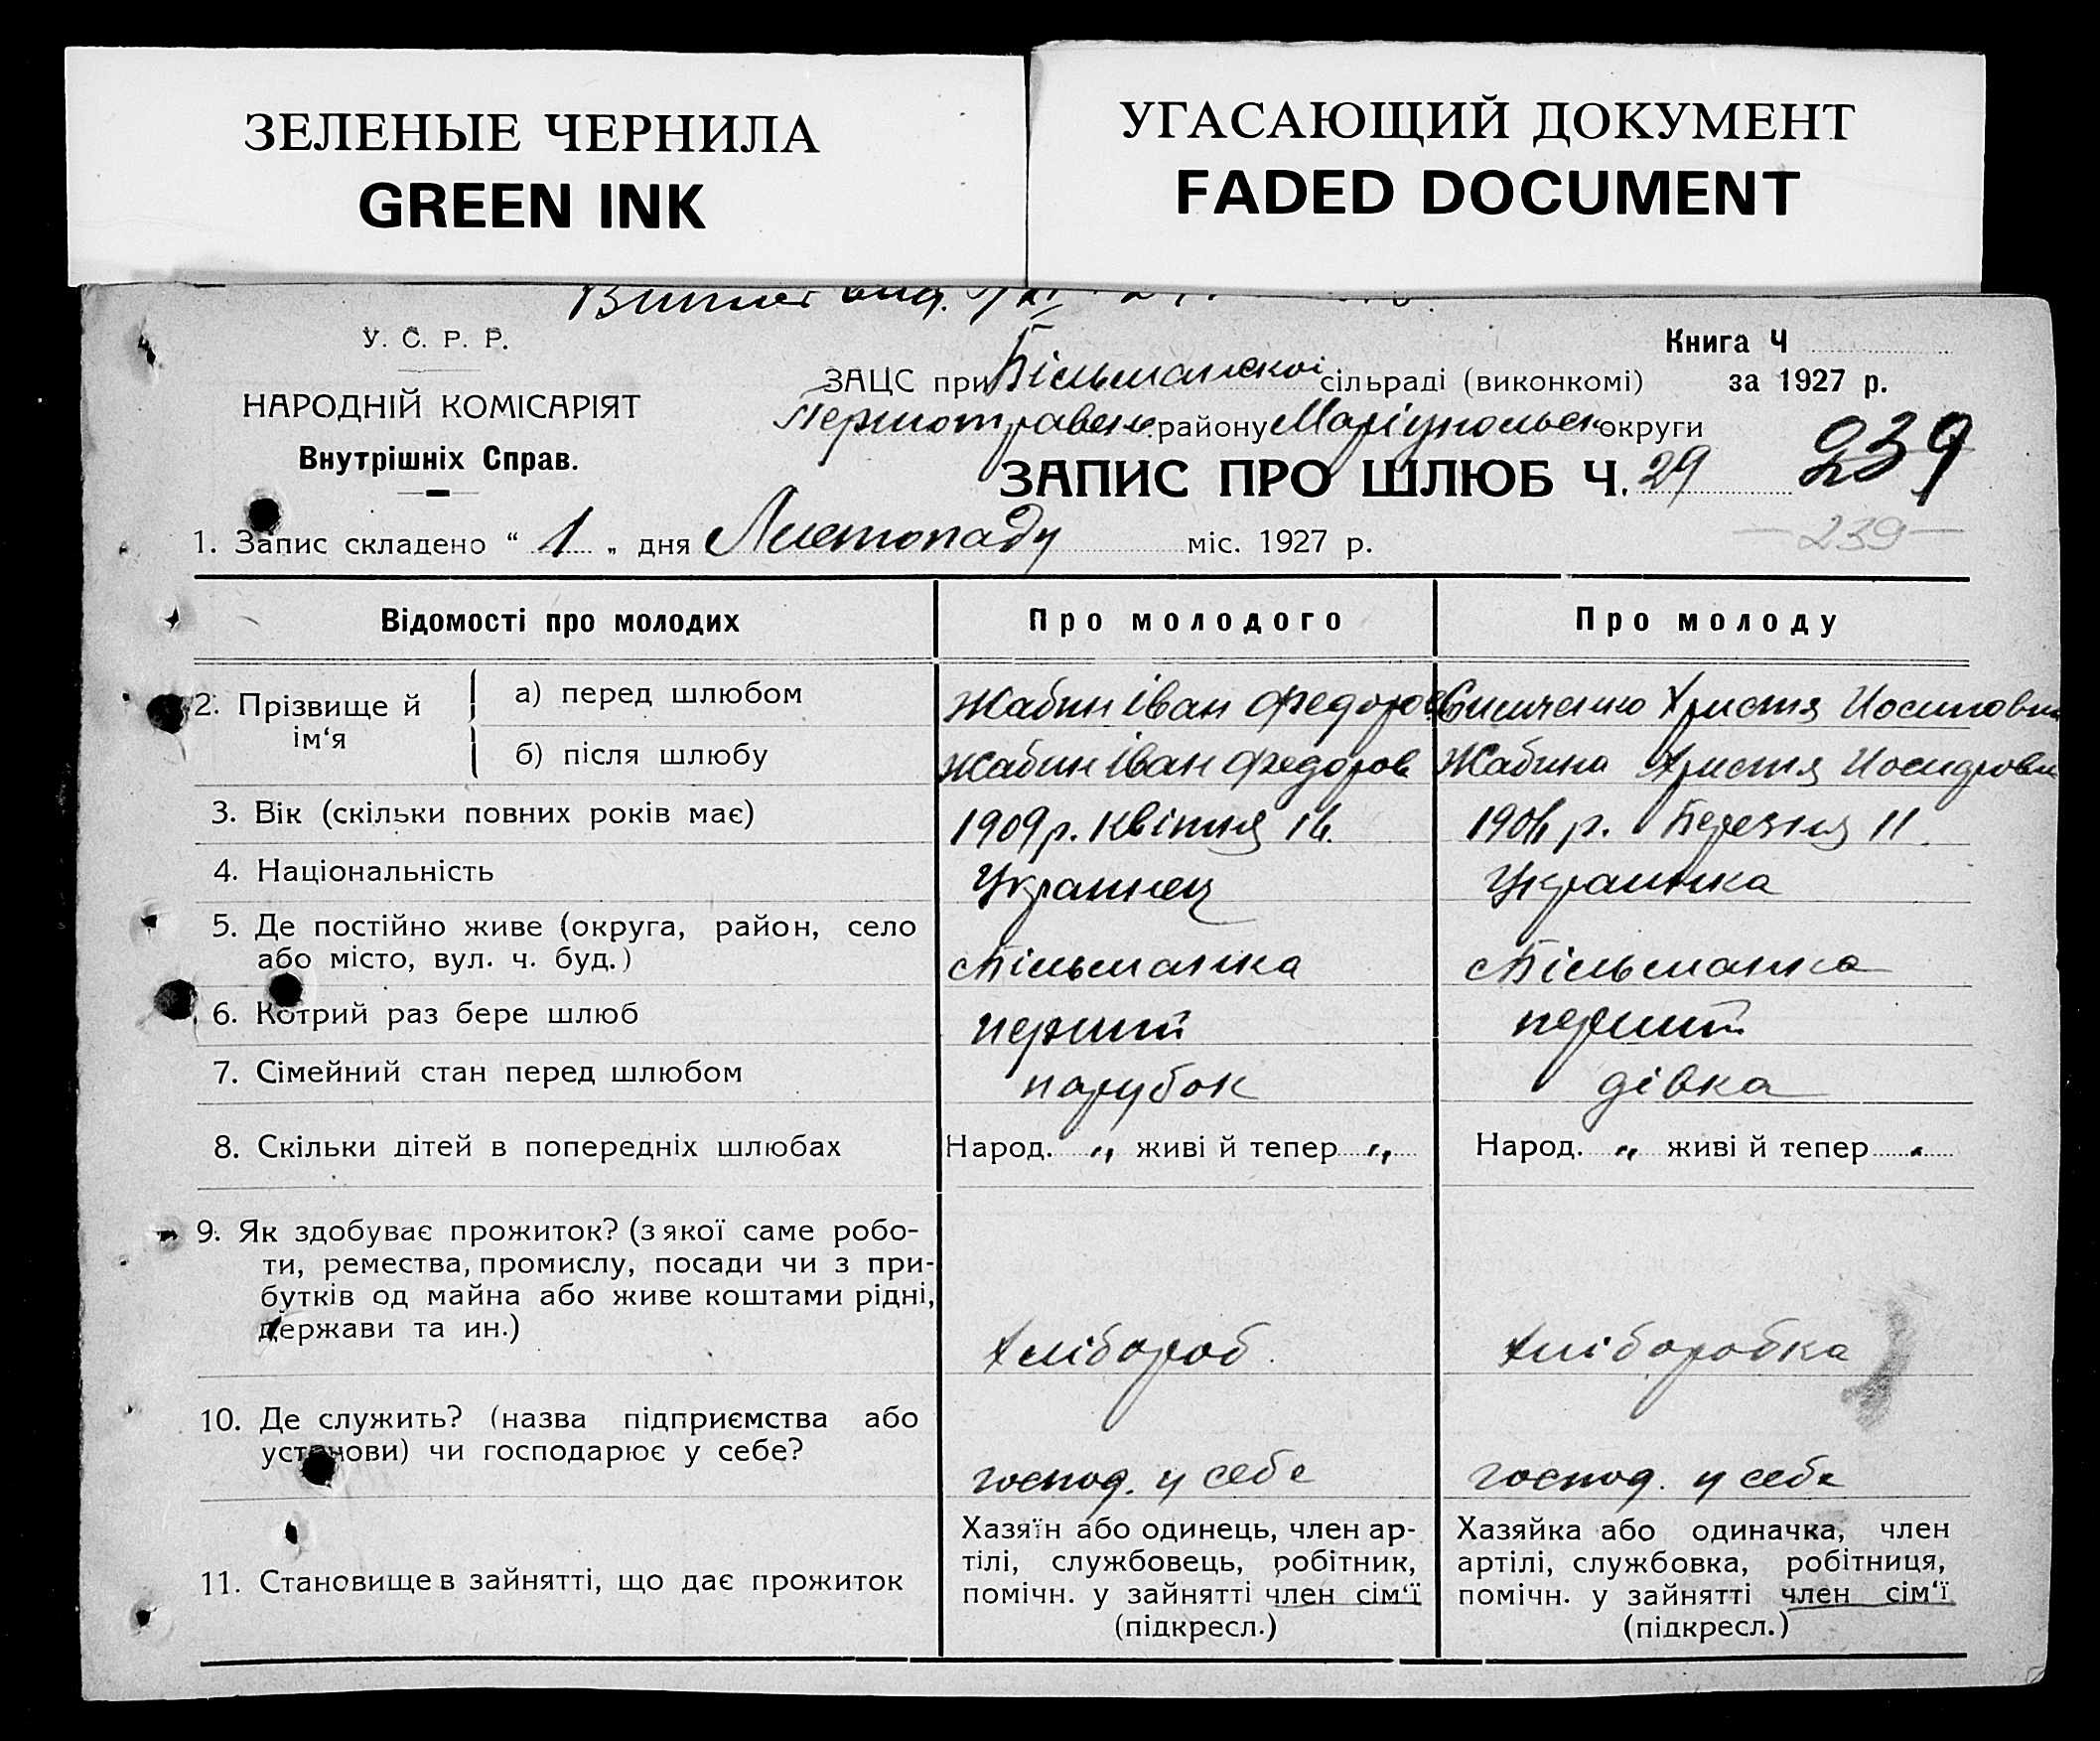 ЗЕЛЕНЫЕ ЧЕРНИЛА
GREEN INK
УГАСАЮЩИЙ ДОКУМЕНТ
FADED DOCUMENT
У. С. Р. Р.
НАРОДНІЙ КОМІСАРІЯТ
Внутрішніх Справ.
Книга Ч
ЗАЦС при Більманской сільраді (виконкомі) за 1927 р.
Першотравен. району Маріупольск округи
ЗАПИС ПРО ШЛЮБ Ч. 29 239
1. Запис складено “ 1 „ дня Листопаду міс. 1927 р. – 239 –
Відомості про молодих Про молодого Про молоду
2. Прізвище й ім‘я
а) перед шлюбом Жабин Іван Федоров Христя Иосиповна
б) після шлюбу Жабин Іван Федоров Жабина Христя
3. Вік (скільки повних років має) 1909 р. Квітня 16. р. Березня 11
4. Національність Украинец Украинка
5. Де постійно живе (округа, район, село
або місто, вул. ч. буд.) с Більманка с Більманка
6. Котрий раз бере шлюб перший перший
7. Сімейний стан перед шлюбом парубок дівка
8. Скільки дітей в попередніх шлюбах Народ. „ живі й тепер „ Народ. „ живі й тепер „
9. Як здобуває прожиток? (з якої саме робо-
ти, ремества, промислу, посади чи з при-
бутків од майна або живе коштами рідні,
держави та ин.) Хлібороб. Хліборобка
10. Де служить? (назва підприємства або
установи) чи господарює у себе? господ. у себе господ. у себе
11. Становище в зайнятті, що дає прожиток
Хазяїн або одинець, член ар-
тілі, службовець, робітник,
помічн. у зайнятті член сім‘ї
(підкресл.)
Хазяйка або одиначка, член
артілі, службовка, робітниця,
помічн. у зайнятті член сім‘ї
(підкресл.)